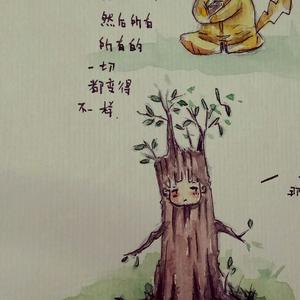 然后所有
所有的
一切
都变得
不一样.